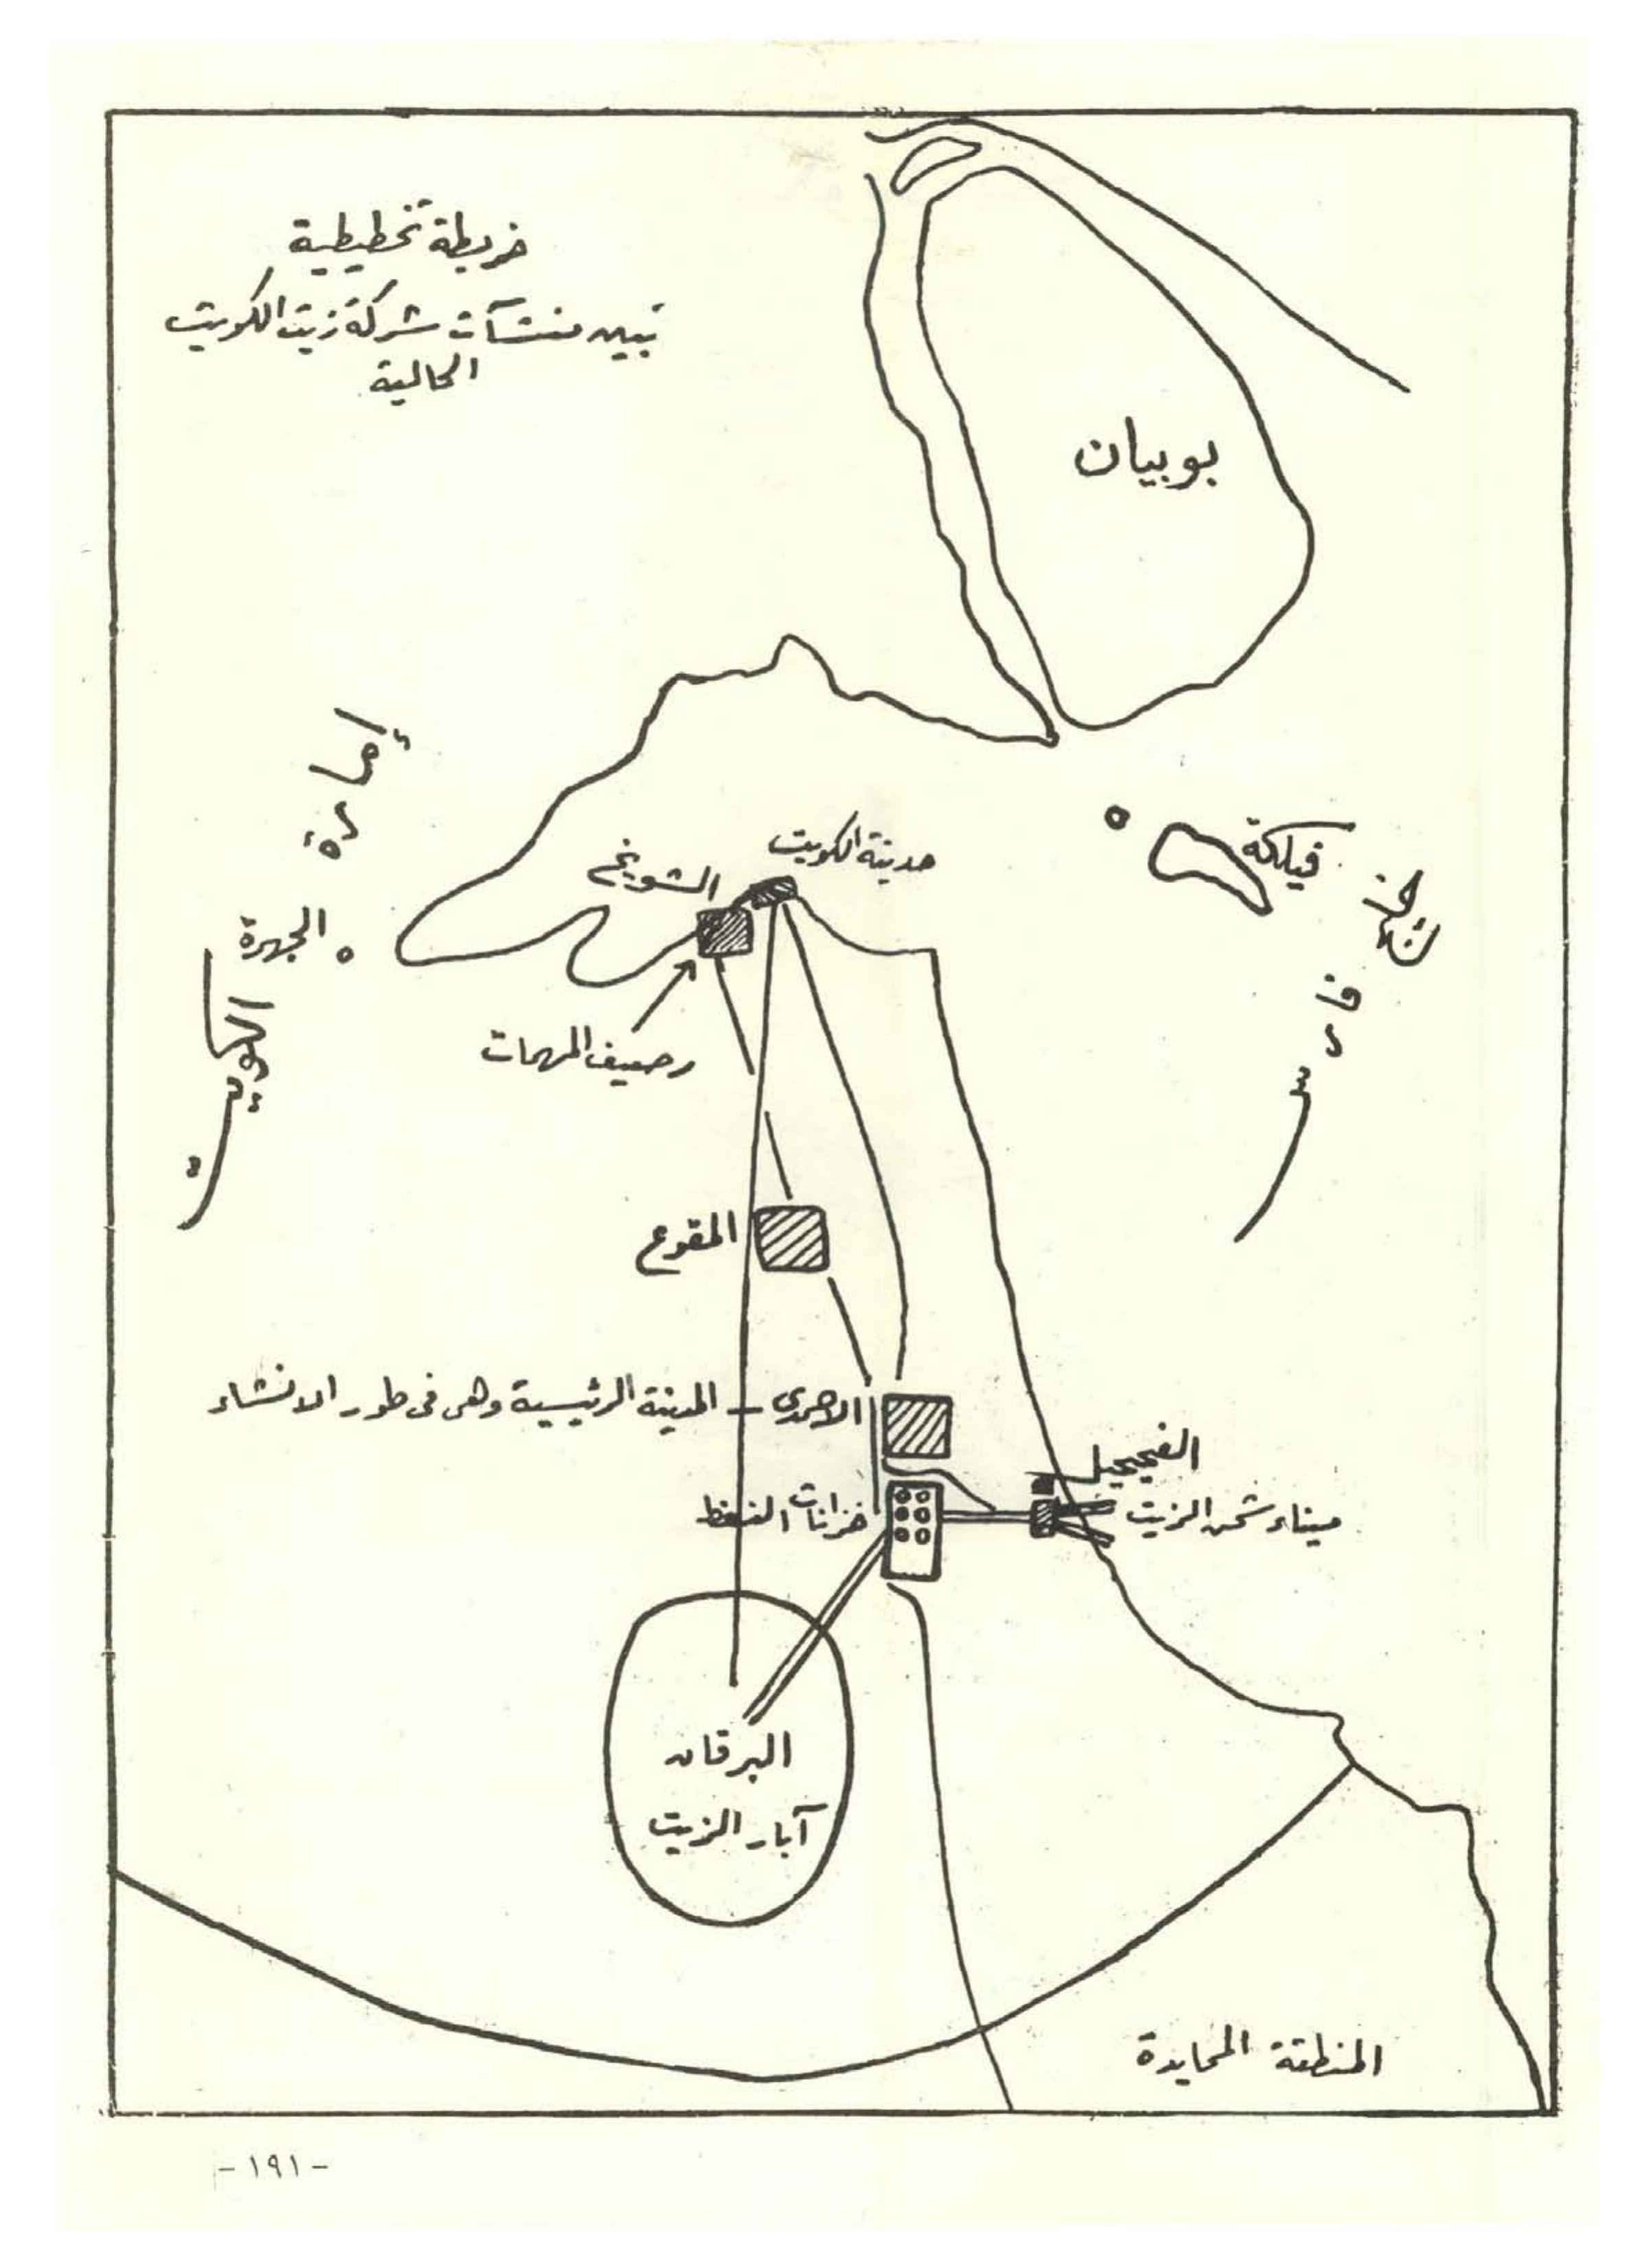 خريطة تخطيطية
تبين منشآت شركة زيت الكويت
الحالية
بوبيان
إمارة الكويت
فيلكة
خليج فارس
مدينة الكويت
الشويخ
الجهرة
رصيف المهمات
المقوع
الاحمدى - المدينة الرئيسية وهى فى طور الانشاء
الفحيحيل
خزانات النفط
ميناء شحن الزيت
البرقان
آبار الزيت
المنطقة المحايدة
- ١٩١ -